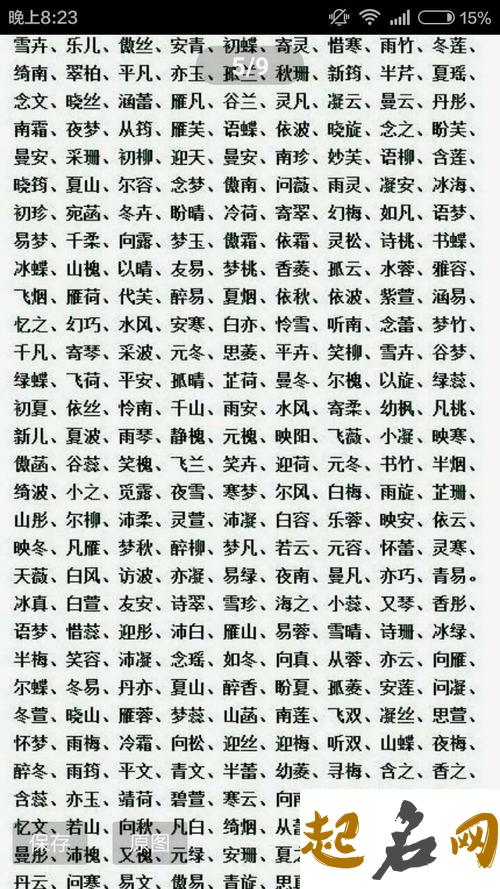 晚上8:23 15%
雪卉、乐儿、傲丝、安青、初蝶、寄灵、惜寒、雨竹、冬莲、
绮南、翠柏、平凡、亦玉、孤兰、秋珊、新筠、半芹、夏瑶、
5/9
念文、晓丝、涵蕾、雁凡、谷兰、灵凡、凝云、曼云、丹彤、
南霜、夜梦、从筠、雁芙、语蝶、依波、晓旋、念之、盼芙、
曼安、采珊、初柳、迎天、曼安、南珍、妙芙、语柳、含莲、
晓筠、夏山、尔容、念梦、傲南、问薇、雨灵、凝安、冰海、
初珍、宛菡、冬卉、盼晴、冷荷、寄翠、幻梅、如凡、语梦、
易梦、千柔、向露、梦玉、傲霜、依霜、灵松、诗桃、书蝶、
冰蝶、山槐、以晴、友易、梦桃、香菱、孤云、水蓉、雅容、
飞烟、雁荷、代芙、醉易、夏烟、依秋、依波、紫萱、涵易、
忆之、幻巧、水风、安寒、白亦、怜雪、听南、念蕾、梦竹、
千凡、寄琴、采波、元冬、思菱、平卉、笑柳、雪卉、谷梦、
绿蝶、飞荷、平安、孤晴、芷荷、曼冬、尔槐、以旋、绿蕊、
初夏、依丝、怜南、千山、雨安、水风、寄柔、幼枫、凡桃、
新儿、夏波、雨琴、静槐、元槐、映阳、飞薇、小凝、映寒、
傲菡、谷蕊、笑槐、飞兰、笑卉、迎荷、元冬、书竹、半烟、
绮波、小之、觅露、夜雪、寒梦、尔风、白梅、雨旋、芷珊、
山彤、尔柳、沛柔、灵萱、沛凝、白容、乐蓉、映安、依云、
映冬、凡雁、梦秋、醉柳、梦凡、若云、元容、怀蕾、灵寒、
天薇、白风、访波、亦凝、易绿、夜南、曼凡、亦巧、青易。
冰真、白萱、友安、诗翠、雪珍、海之、小蕊、又琴、香彤、
语梦、惜蕊、迎彤、沛白、雁山、易蓉、雪晴、诗珊、冰绿、
半梅、笑容、沛凝、念瑶、如冬、向真、从蓉、亦云、向雁、
尔蝶、冬易、丹亦、夏山、醉香、盼夏、孤菱、安莲、问凝、
冬萱、晓山、雁蓉、梦蕊、山菡、南莲、飞双、凝丝、思萱、
怀梦、雨梅、冷霜、向松、迎丝、迎梅、听双、山蝶、夜梅、
醉冬、雨筠、平文、青文、半蕾、幼菱、寻梅、含之、香之、
含蕊、亦玉、靖荷、碧萱、寒云、向南、
忆文、若山、向秋、凡白、绮烟、从蕾、
保存 原图
曼彤、沛槐、又槐、元绿、安珊、夏之、
丹云、问寒、易文、傲易、青旋、思真、
起名网